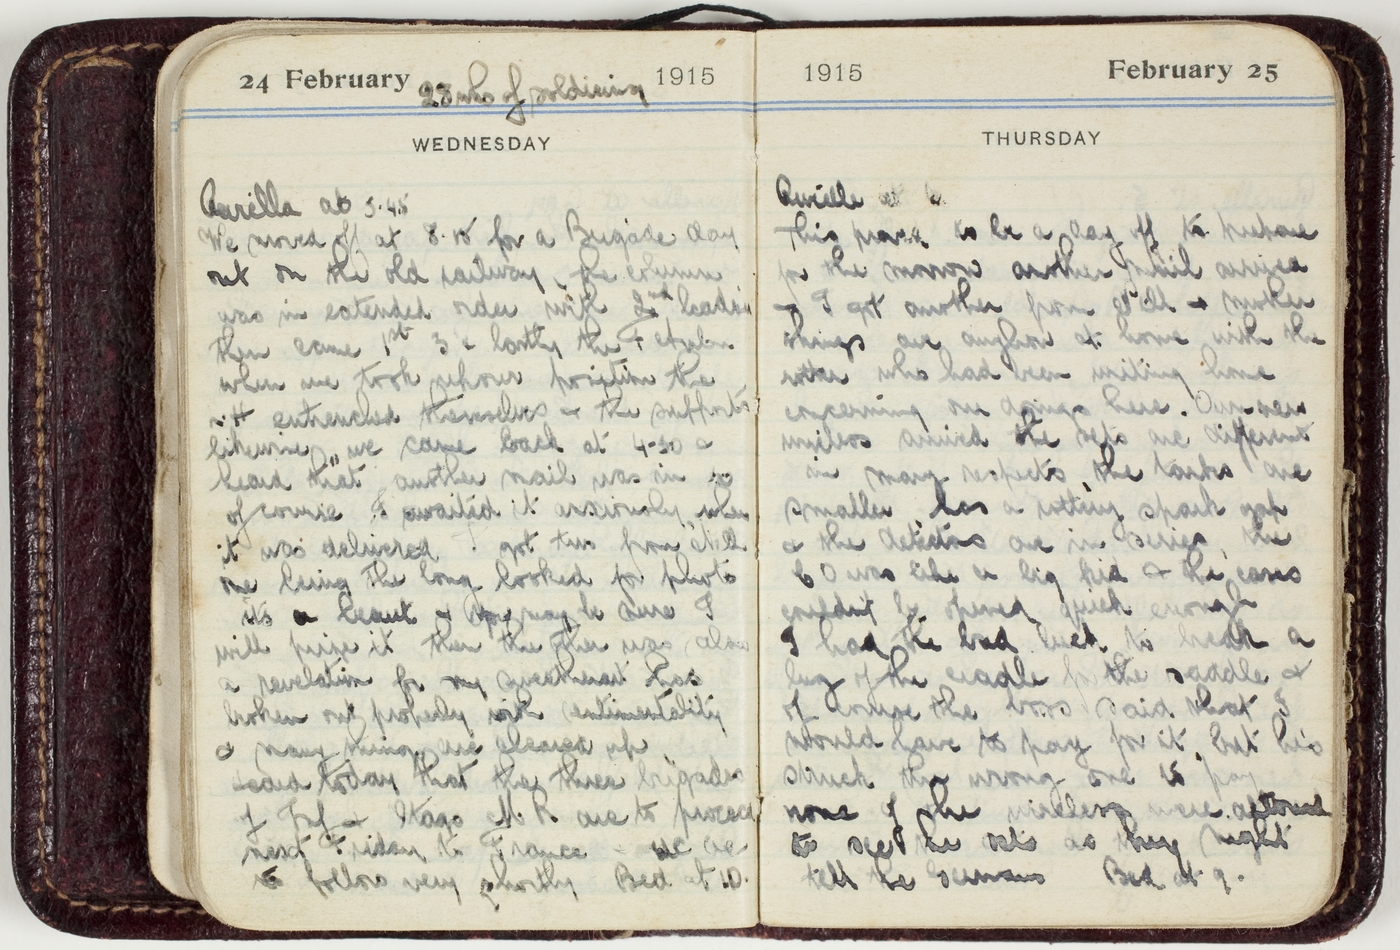 24 February 28 wks of soldiering 1915
WEDNESDAY
Reveille at 5.45
We moved off at 8.15 for a Brigade day
out on the old railway, the column
was in extended order with 2nd leading
then came 1st 3rd & lastly the 4th
when we took up our position the
entrenched themselves & the supports
likewise, we came back at 4.30 &
heard that another mail was in so
of course I awaited it anxiously, when
it was delivered I got two from
one being the long looked for photo
its a beaut & you may be sure I
will prize it then the other was also
a revelation for my sweetheart has
broken out properly with sentimentality
& many things are cleared up
today that the three brigades
& Otago M R are to proceed
next Friday to France & we are
to follow very shortly Bed at 10.
1915 February 25
THURSDAY
Reveille at 6
This proved to be a day off to prepare
for the morrow another mail arrived
& I got another from & mother
things are at home with the
rotter who had been writing home
concerning our doings here. Our new
wireless arrived the sets are different
in many respects, the tanks are
smaller, has a rotting spark gap
& the detectors are in series, the
C O was like a big kid & the cases
couldn't be opened quick enough
I had the bad luck to break a
lug of the cradle for the saddle &
of course the boss said that I
would have to pay for it, but he's
struck the wrong one to pay
none of the wireless were allowed
to see the sets as they might
tell the Germans Bed at 9.